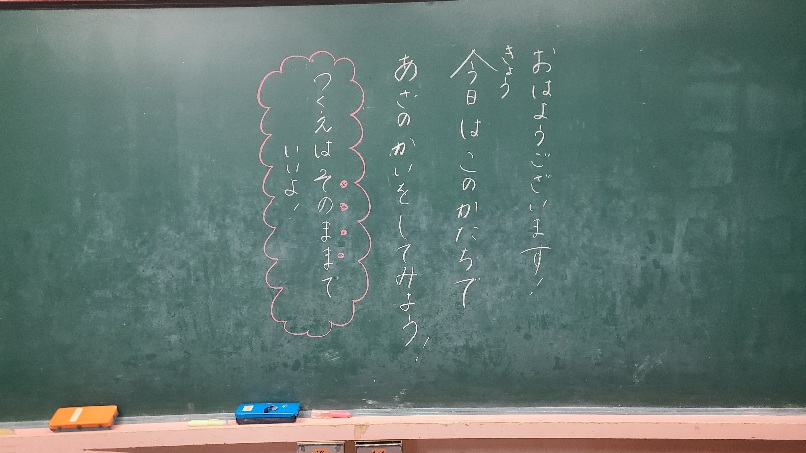 おはようございます!
きょう
今日はこのかたちで
あさのかいをしてみよう!
つくえはそのままで
いいよ!